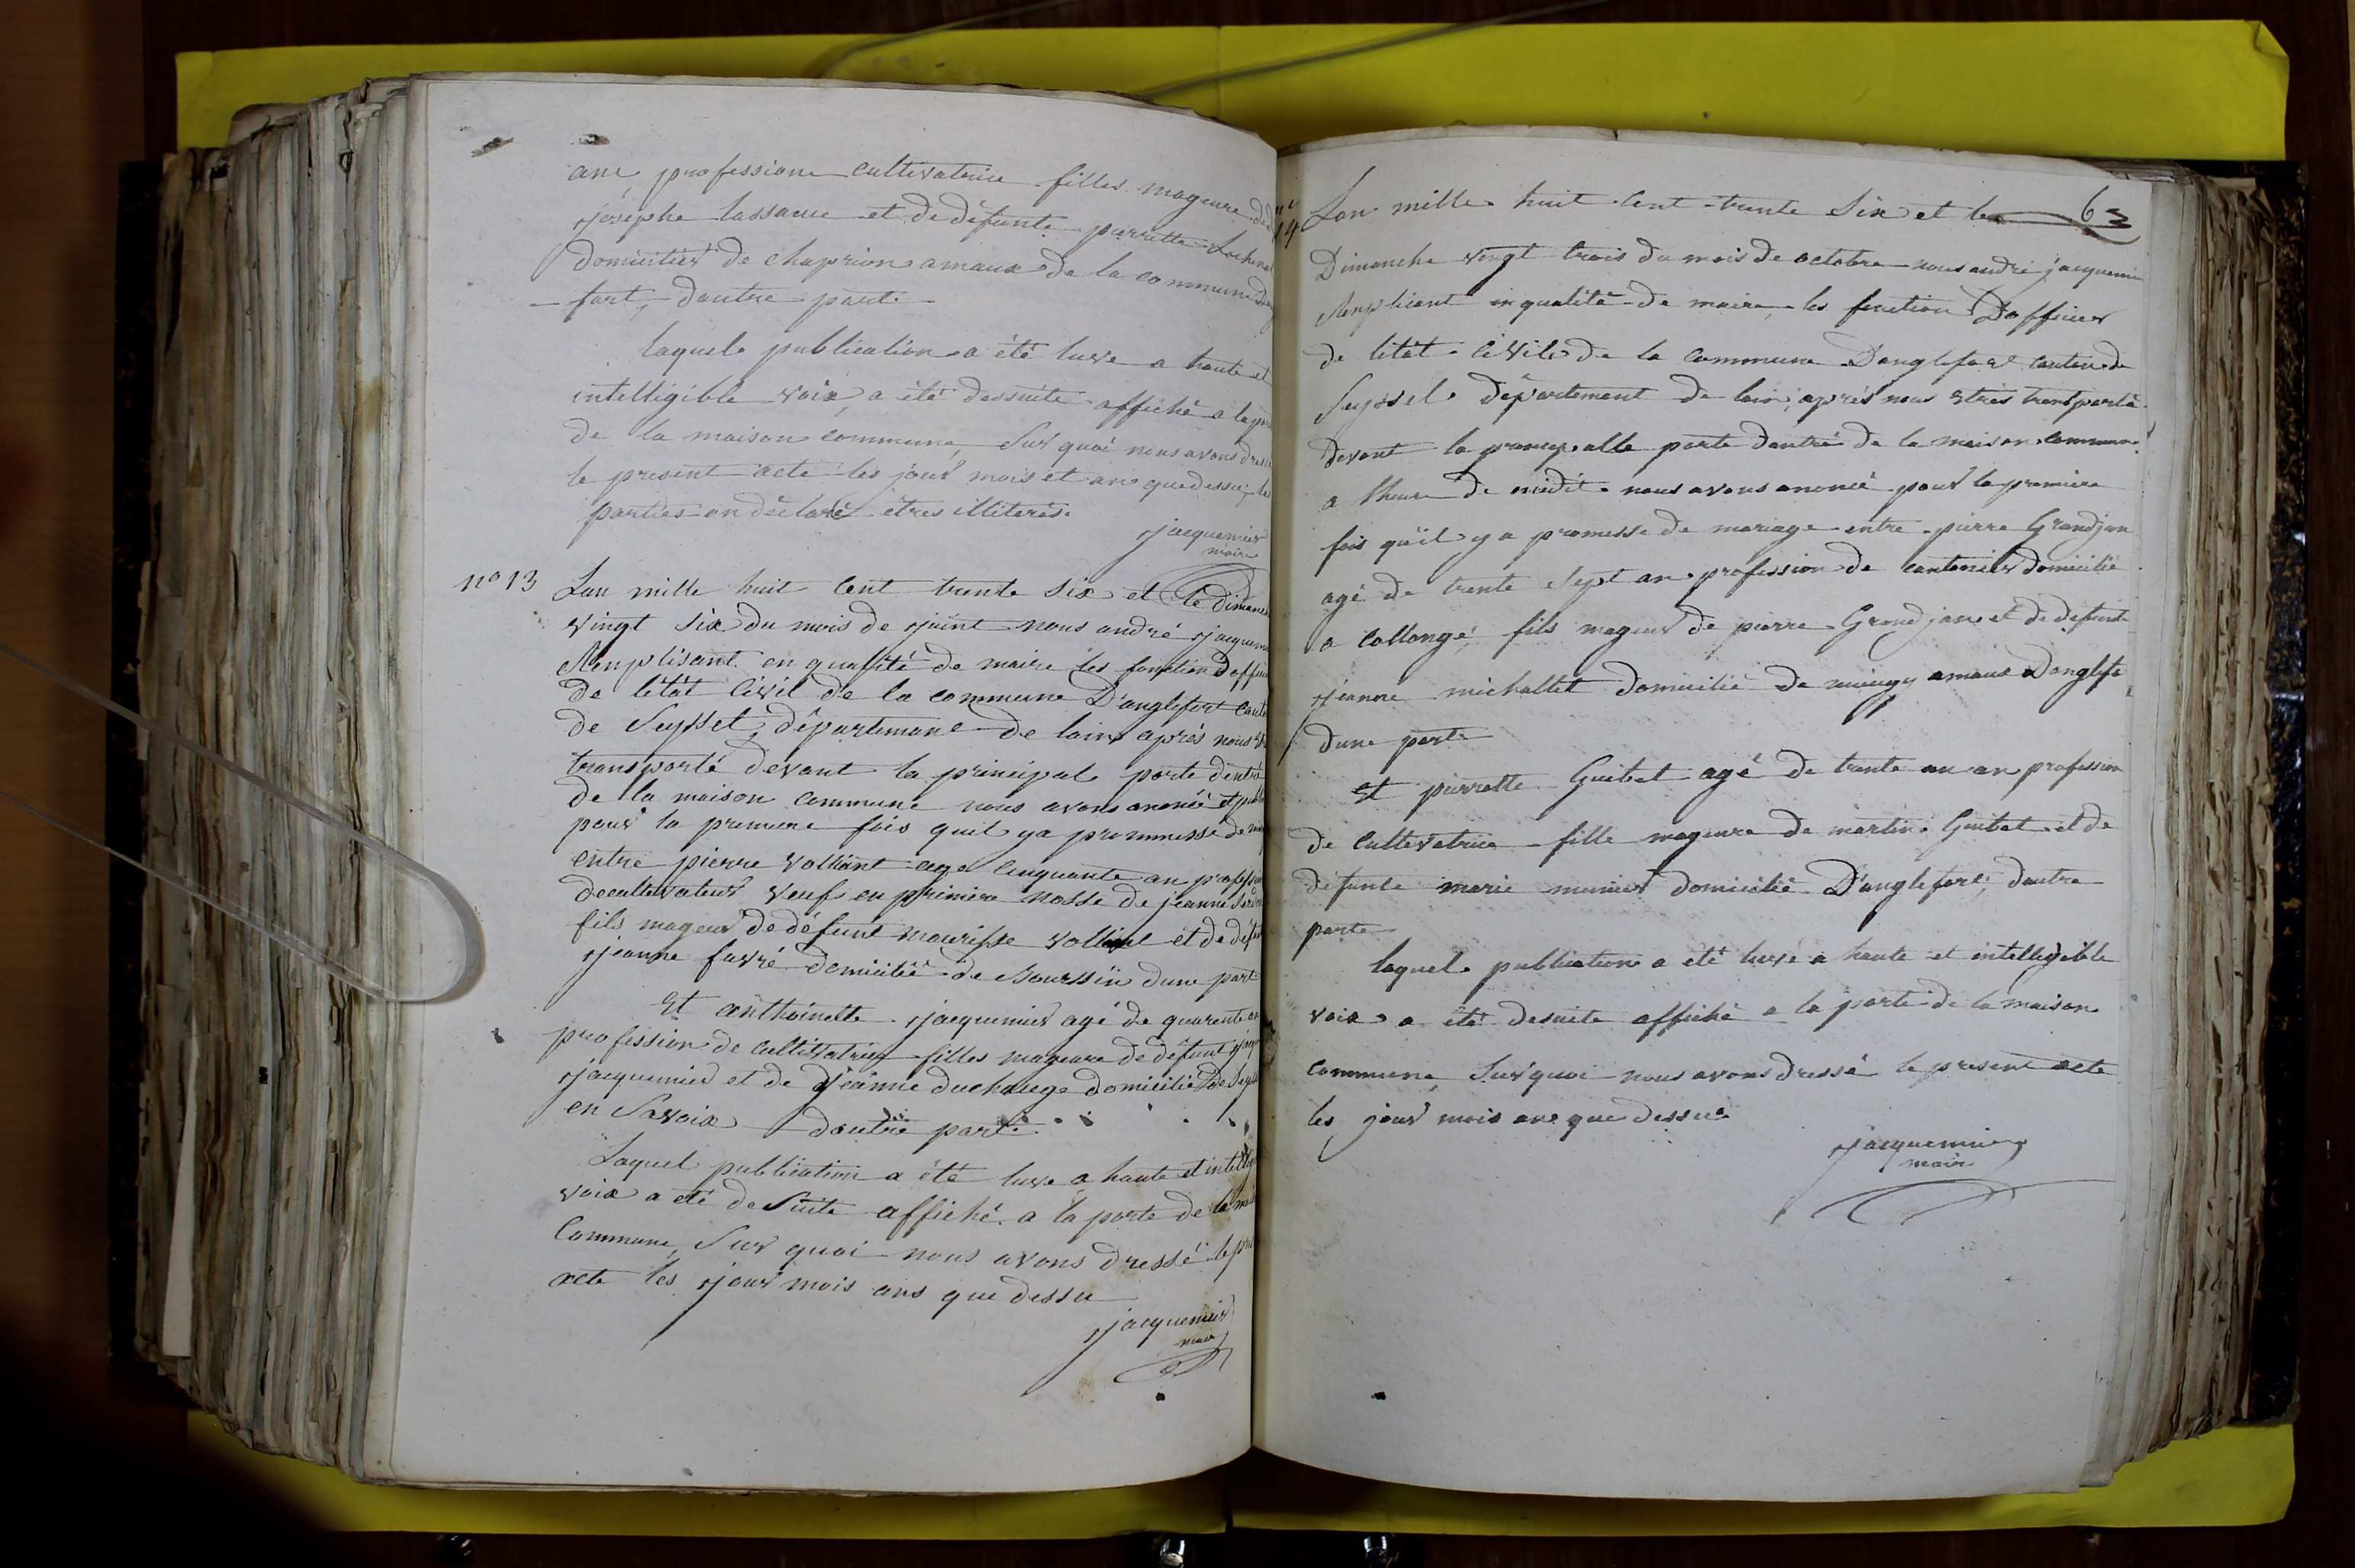 ane, professione cultivatrice filles mageure de
josephe lassacue et de défunte perrette
domiciliés de chaprion amaux de la commune
fort, dautre parti
laquele publication a été luxe a haute et
intelligible voix, a été dessuite affiché a la
de la maison commune, Sur quoi nous avons
le present acte les jour mois et ans que dessu, les
parties on déclaré êtres illiterés.
jacquemier
maire
no 13
Lan mille huit Cent trente Six et le diman
vingt Six du mois de juint nous andré jacquem
Remplisant en qualité de maire les fonction doffici
de létat Civil de la commune D'anglefort cant
de Seyssel, département de lain après nous
transporté devant la principal porte d'entré
de la maison commune nous avons anoncé et
pour la premiere fois quil ya prommesse de
entre pierre volliant age cinquante an profess
de cultivateur veuf en primiere nosse de jeanne
fils mageur de défunt mourisse et de défun
jeanne favré domicilié de dune part
Et anthoinette jacquemier agé de quarente an
profession de cultivatrice filles mageure de défunt
jacquemier et de jeanne domicilié de
en Savoix dautre parti
Laquel publication a été luxe a haute et intellig
voix a été de Suite affiché a la porte de la mai
Commune, Sur quoi nous avons dressé le
acte les jour mois ans que dessu
jacquemier
maire
14
63
Lan mille huit Cent trente Six et le
Dimanche vingt trois du mois de octobre nous andré jacquemier
Remplicant en qualité de maire, les fonction D'officier
de létat Civile de la commune Danglefort canton de
Seyssel département de lain, après nous êtres transporté
devant la principalle porte dentré de la maison commune
a lheure de midit nous avons anoncé pour la première
fois quil y a promesse de mariage entre pierre Grandjan
agé de trente Sept an profession de cantonier domicilié
a Collonge, fils mageur de pierre Grandjan et de defunte
jeanne michallet domicilié de amaux Danglefo
dune parte
Et pierrette Guibet agé de trente un an profession
de cultivatrice fille mageure de martin Guibet et de
défunte marie munier domicilié D'anglefort, dautre
parte
laquele publication a été luxé a haute et intelligible
voix a été desuite affiché a la porte de la maison
commune, Sur quoi nous avons dressé le present acte
les jour mois ans que dessue
jacquemier
maire